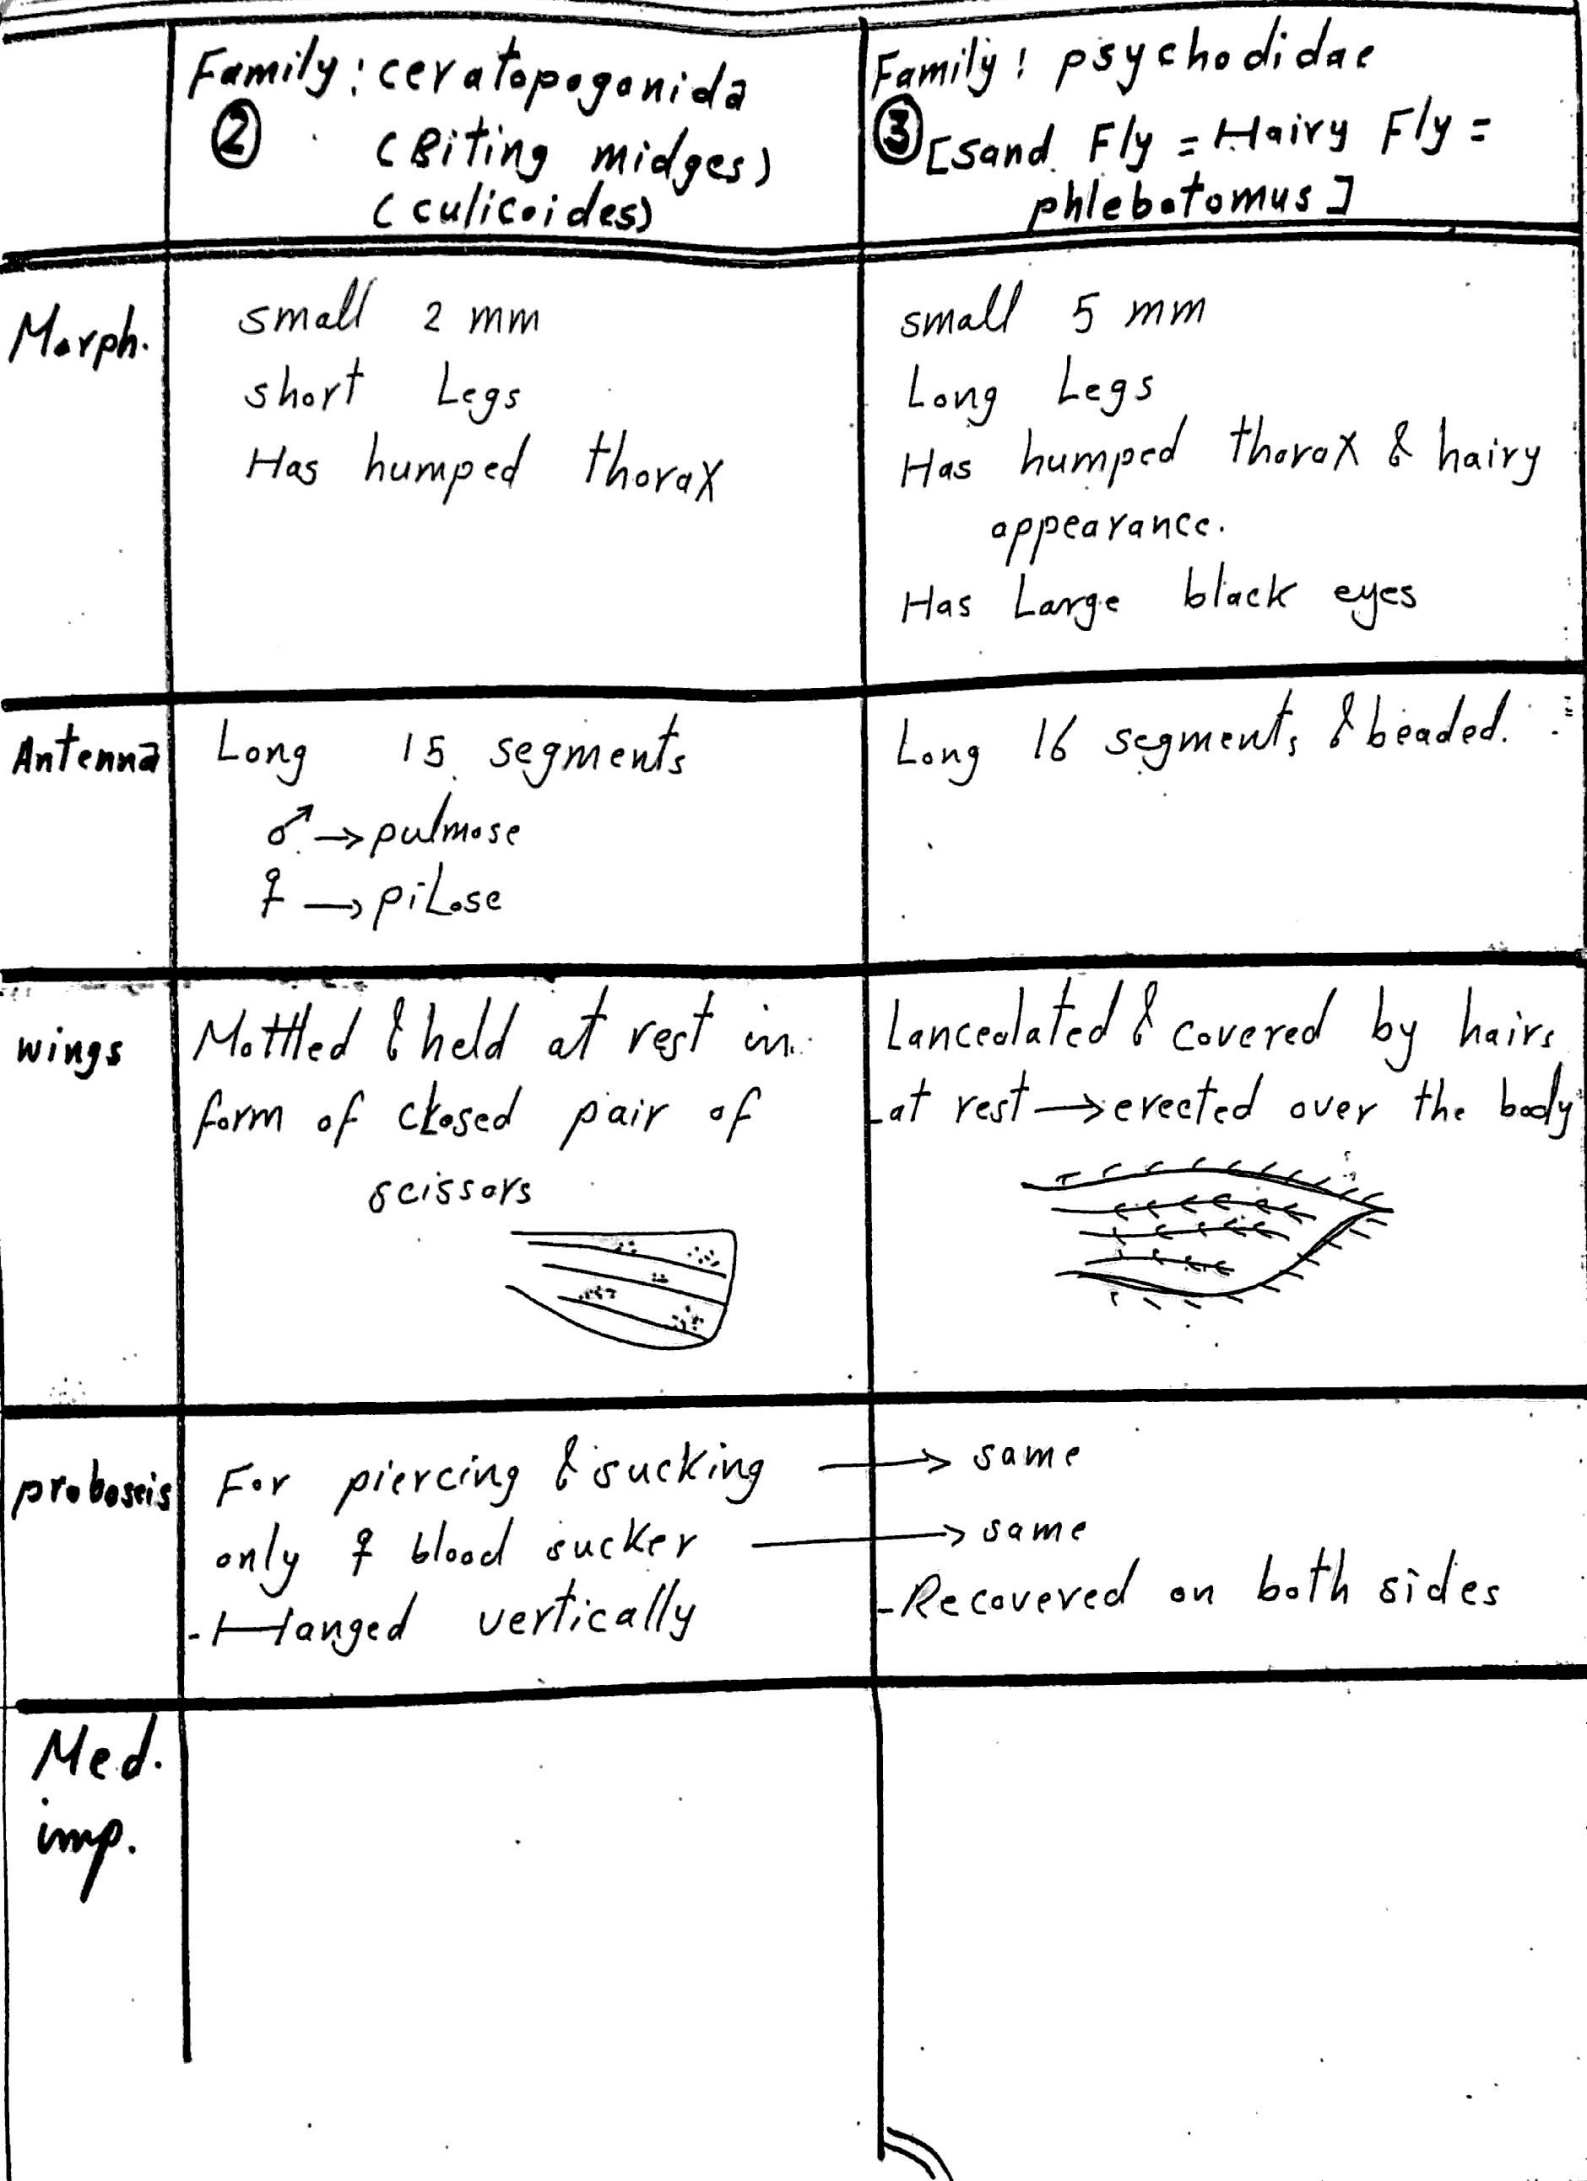 Family: ceratopogonida
② (Biting midges)
(culicoides)
Family: psychodidae
③ [Sand Fly = Hairy Fly =
phlebotomus]
Morph.
small 2 mm
short Legs
Has humped thorax
small 5 mm
Long Legs
Has humped thorax & hairy
appearance.
Has Large black eyes
Antenna
Long 15 segments
♂ → pulmose
♀ → piLose
Long 16 segments & beaded.
wings
Mottled & held at rest in
form of closed pair of
scissors
Lanceolated & covered by hairs
-at rest → erected over the body
proboscis
For piercing & sucking → same
only ♀ blood sucker → same
- Hanged vertically
- Recovered on both sides
Med.
imp.